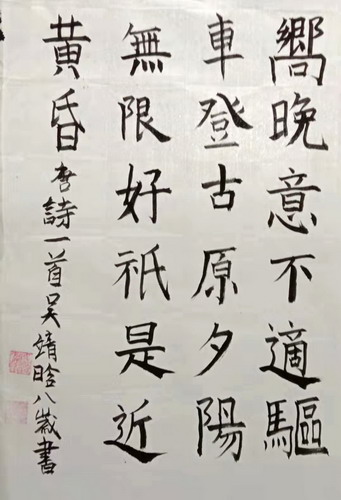 嚮晚意不適驅
車登古原夕陽
無限好祇是近
黄昏 唐詩一首吳靖晗八歲書